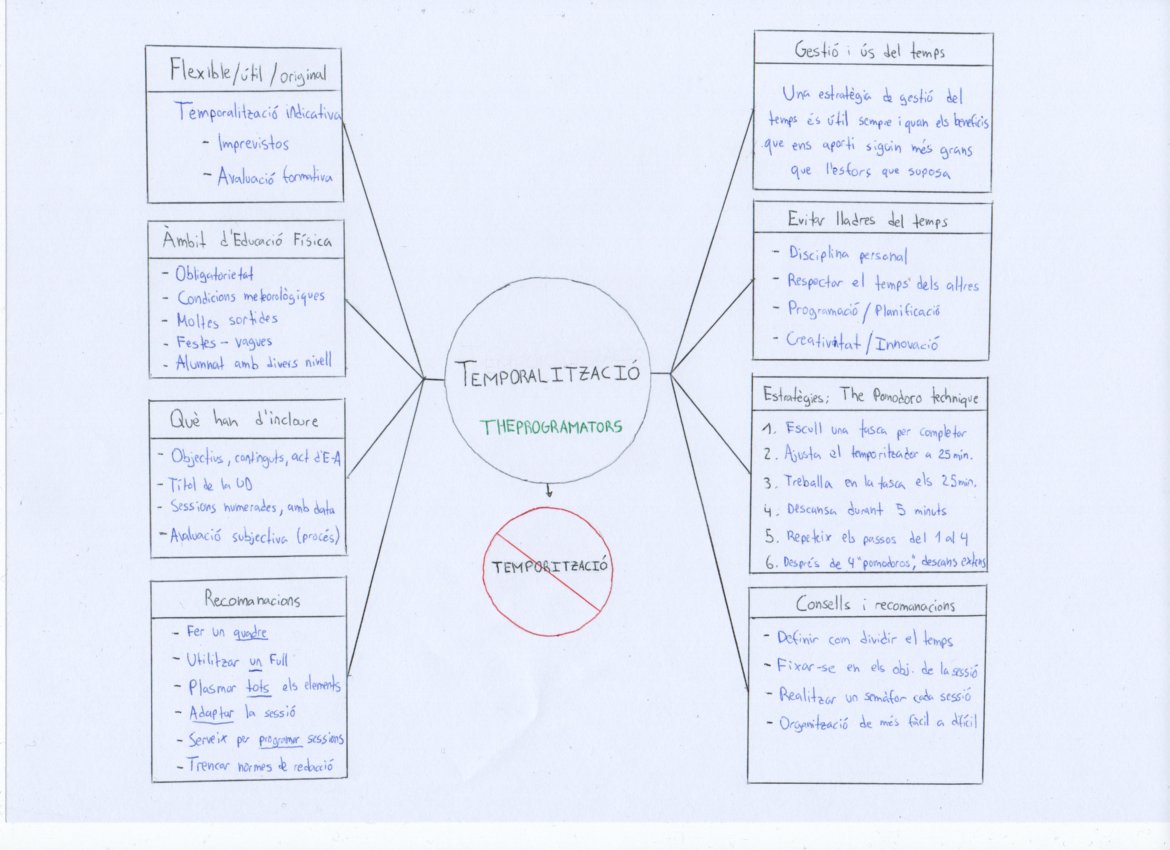 Flexible/útil/original
Temporalització indicativa
- Imprevistos
- Avaluació formativa
Àmbit d'Educació Física
- Obligatorietat
- Condicions meteorològiques
- Moltes sortides
- Festes - vagues
- Alumnat amb divers nivell
Què han d'incloure
- Objectius, continguts, act d'E-A
- Títol de la UD
- Sessions numerades, amb data
- Avaluació subjectiva (procés)
Recomanacions
- Fer un quadre
- Utilitzar un Full
- Plasmar tots els elements
- Adaptar la sessió
- Serveix per programar sessions
- Trencar normes de redacció
TEMPORALITZACIÓ
THEPROGRAMATORS
TEMPORITZACIÓ
Gestió i ús del temps
Una estratègia de gestió del
temps és útil sempre i quan els beneficis
que ens aporti siguin més grans
que l'esforç que suposa
Evitar lladres del temps
- Disciplina personal
- Respectar el temps dels altres
- Programació / Planificació
- Creativitat / Innovació
Estratègies: The Pomodoro technique
1. Escull una tasca per completar
2. Ajusta el temporitzador a 25 min.
3. Treballa en la tasca els 25 min.
4. Descansa durant 5 minuts
5. Repeteix els passos del 1 al 4
6. Després de 4 "pomodoros", descans extens
Consells i recomanacions
- Definir com dividir el temps
- Fixar-se en els obj. de la sessió
- Realitzar un semàfor cada sessió
- Organització de més fàcil a difícil